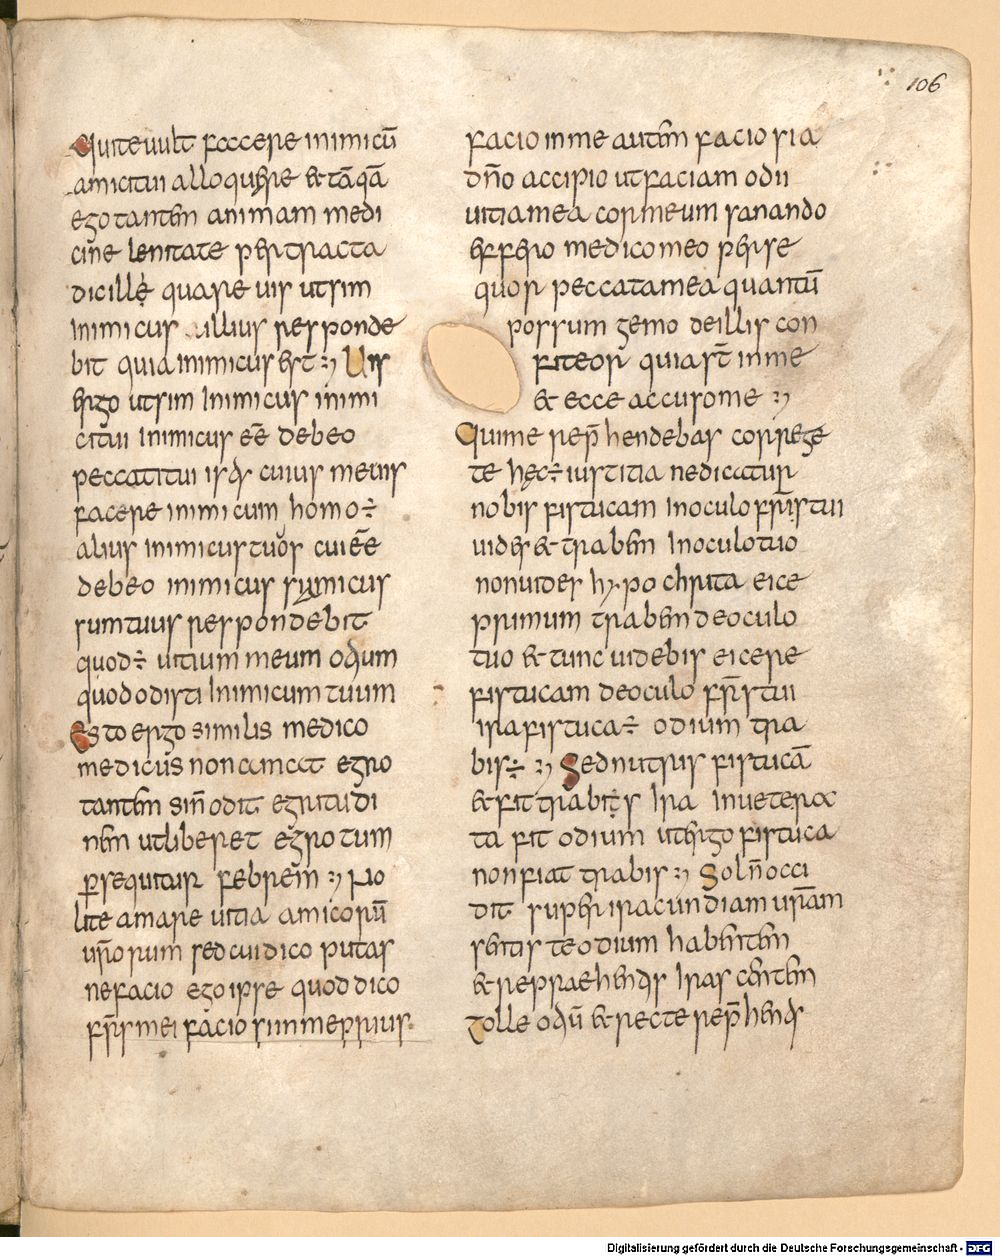 106
Qui te uult facere inimicū
amici tui alloquere & tāquā
egotantem animam medi
cine lenitate pertracta
dic illę quare uis ut sim
inimicus illius responde
bit quia inimicus est :, Uis
ergo ut sim inimicus inimi
ci tui inimicus eē debeo
peccati tui is qđs cuius me uis
facere inimicum homo ÷
alius inimicus tuus cui eē
debeo inimicus
sum tuus respondebit
quod ÷ uitium meum odium
quod odisti inimicum tuum
Esto ergo similis medico
medicus non amat egro
tantem si n̄ odit egritudi
nem ut liberet egrotum
persequitur febrem :, No
lite amare uitia amicorū
ur̄orum sed cui dico putas
ne facio ego ipse quod dico
fr̄s mei facio si in me prius
facio in me autem facio si a
dn̄o accipio ut faciam odii
uitia mea cor meum sanando
offero medico meo perse
quor peccata mea quantū
possum gemo de illis con
fiteor quia st̄ in me
& ecce accuso me :,
Qui me rep̄hendebas corrige
te hęc ÷ iustitia ne dicatur
nobis fistucam in oculo fr̄is tui
uides & trabem in oculo tuo
non uides hypochrita eice
primum trabem de oculo
tuo & tunc uidebis eicere
fistucam de oculo fr̄is tui
ira fistuca ÷ odium tra
bis ÷ :, Sed nutris fistucā
& fit trabis ira inuetera
ta fit odium ut ergo fistuca
non fiat trabis :, Sol n̄ occi
dit super iracundiam ur̄am
sentis te odium habentem
& repraehendis irascentem
tolle odiū & recte rep̄hendis
Digitalisierung gefördert durch die Deutsche Forschungsgemeinschaft - DFG